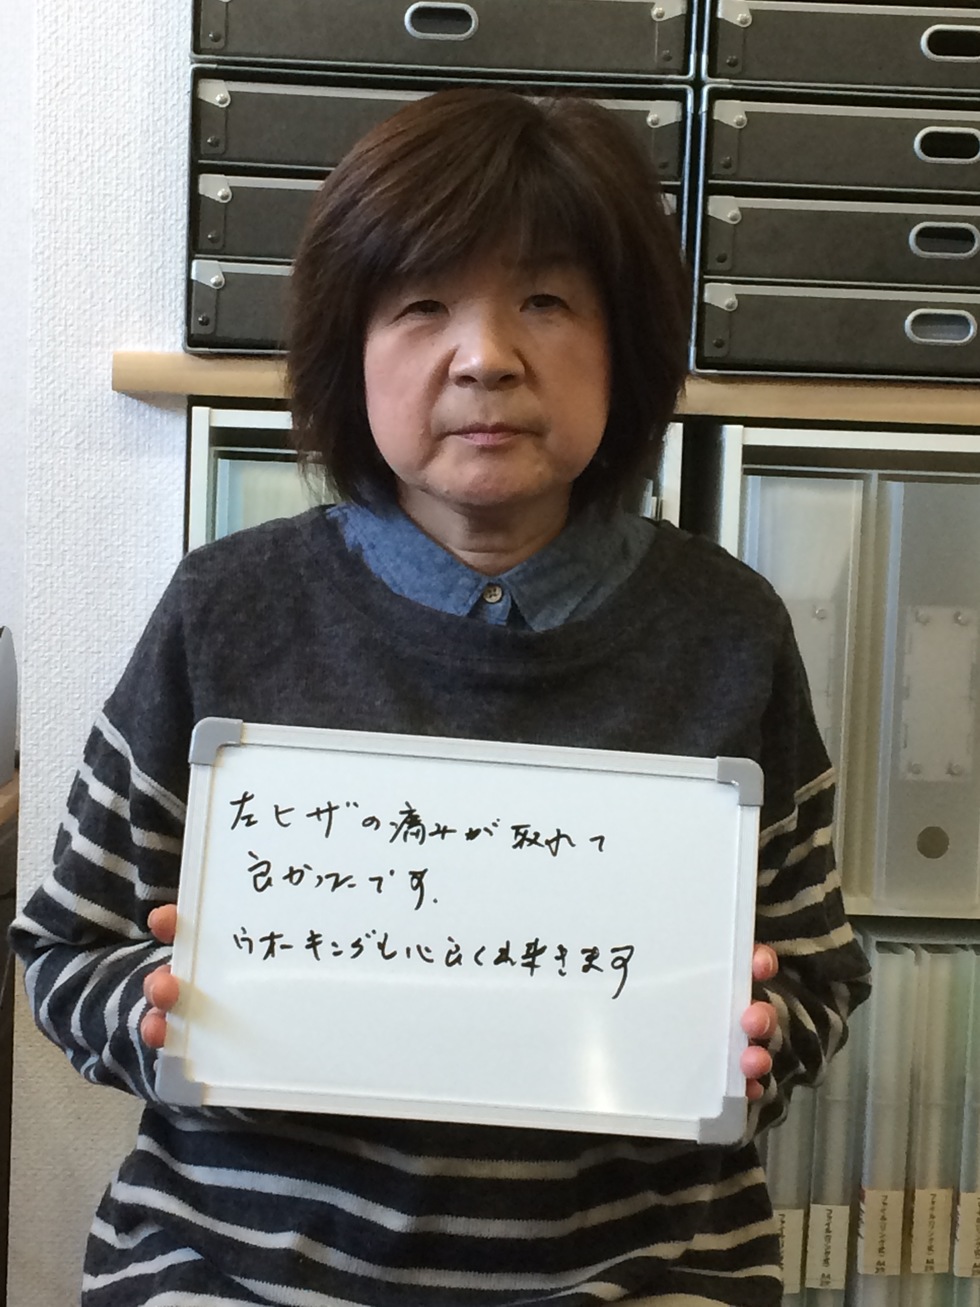 左ヒザの痛みが取れて
良かったです.
ウオーキングも心良く出来きます